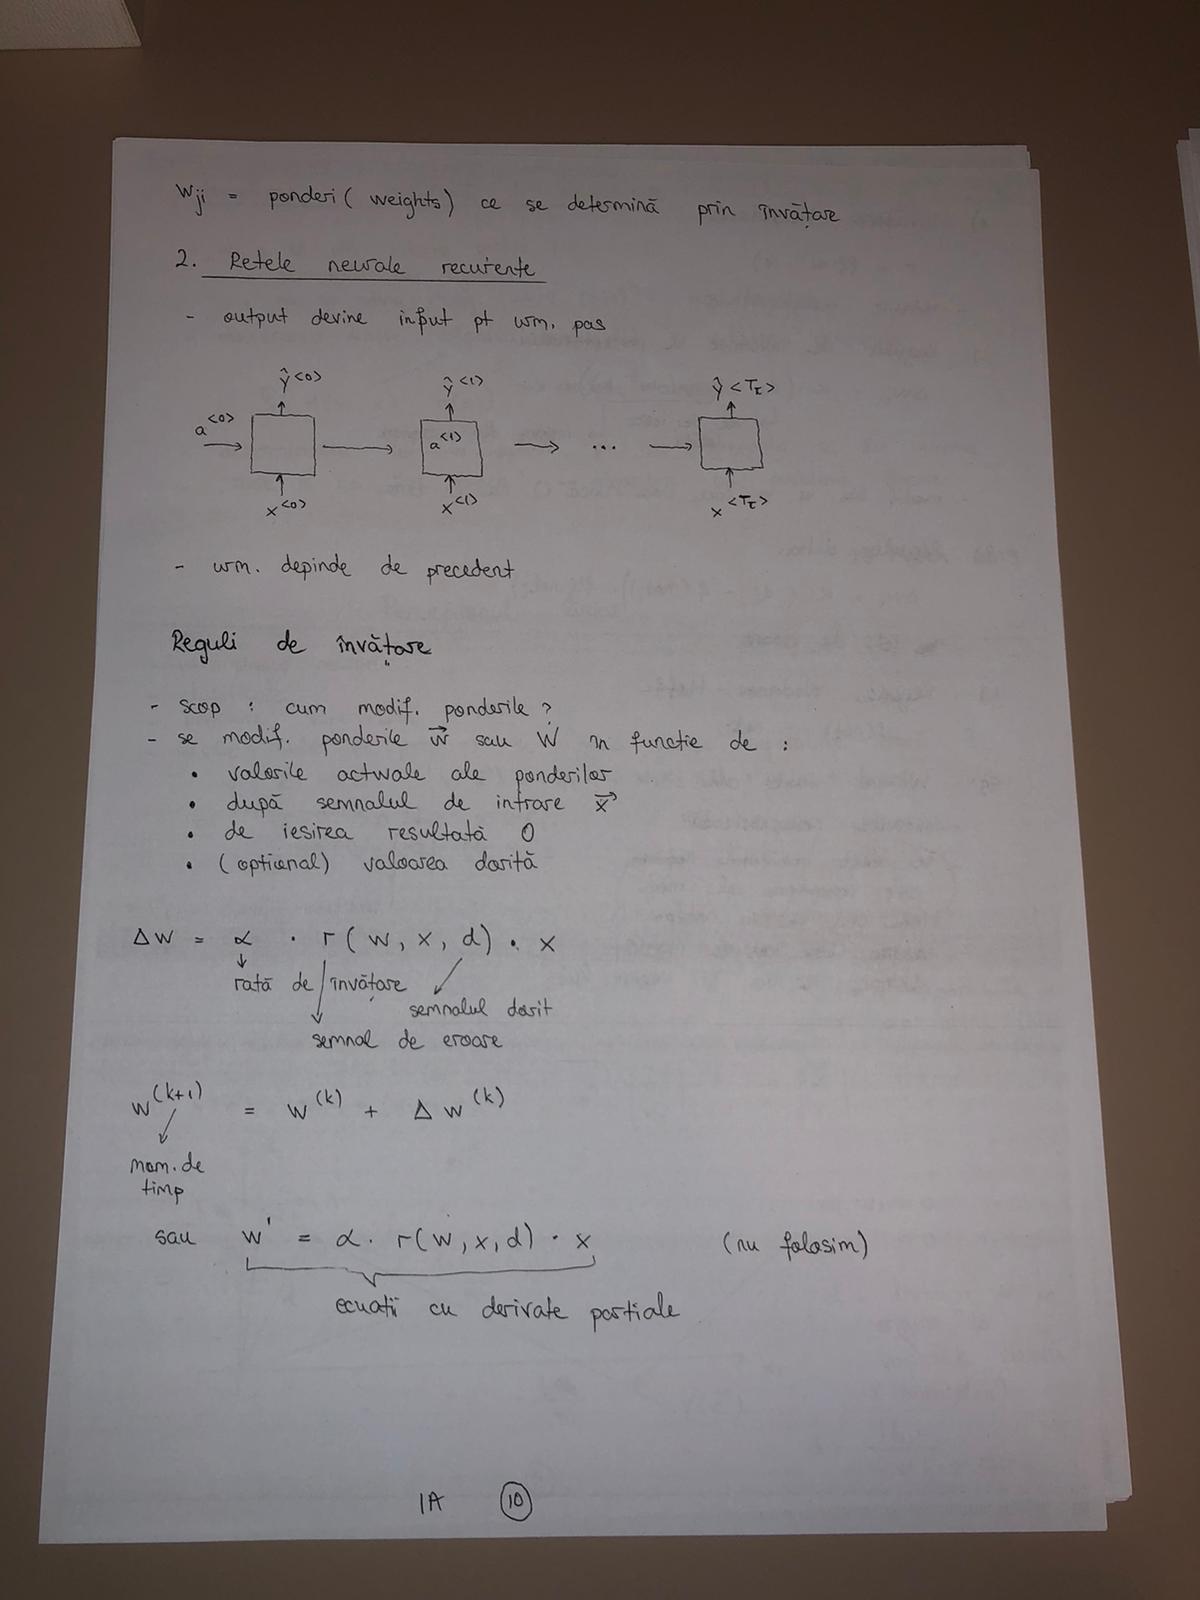 Wji = ponderi ( weights ) ce se determină prin învățare
2. Retele neurale recurente
- output devine input pt urm. pas
ŷ<0> ŷ<1> ŷ<Tx>
a<0> → → a<1> → ... →
x<0> x<1> x<Tx>
- urm. depinde de precedent
Reguli de învățare
- scop : cum modif. ponderile ?
- se modif. ponderile w⃗ sau W în functie de :
• valorile actuale ale ponderilor
• după semnalul de intrare x⃗
• de iesirea resultată O
• ( optional ) valoarea dorită
Δw = α · r ( w , x , d ) · x
rată de învățare
semnalul dorit
semnal de eroare
w(k+1) = w(k) + Δ w(k)
mom. de
timp
sau w' = α · r(w, x, d) · x (nu folosim)
ecuatii cu derivate partiale
IA 10